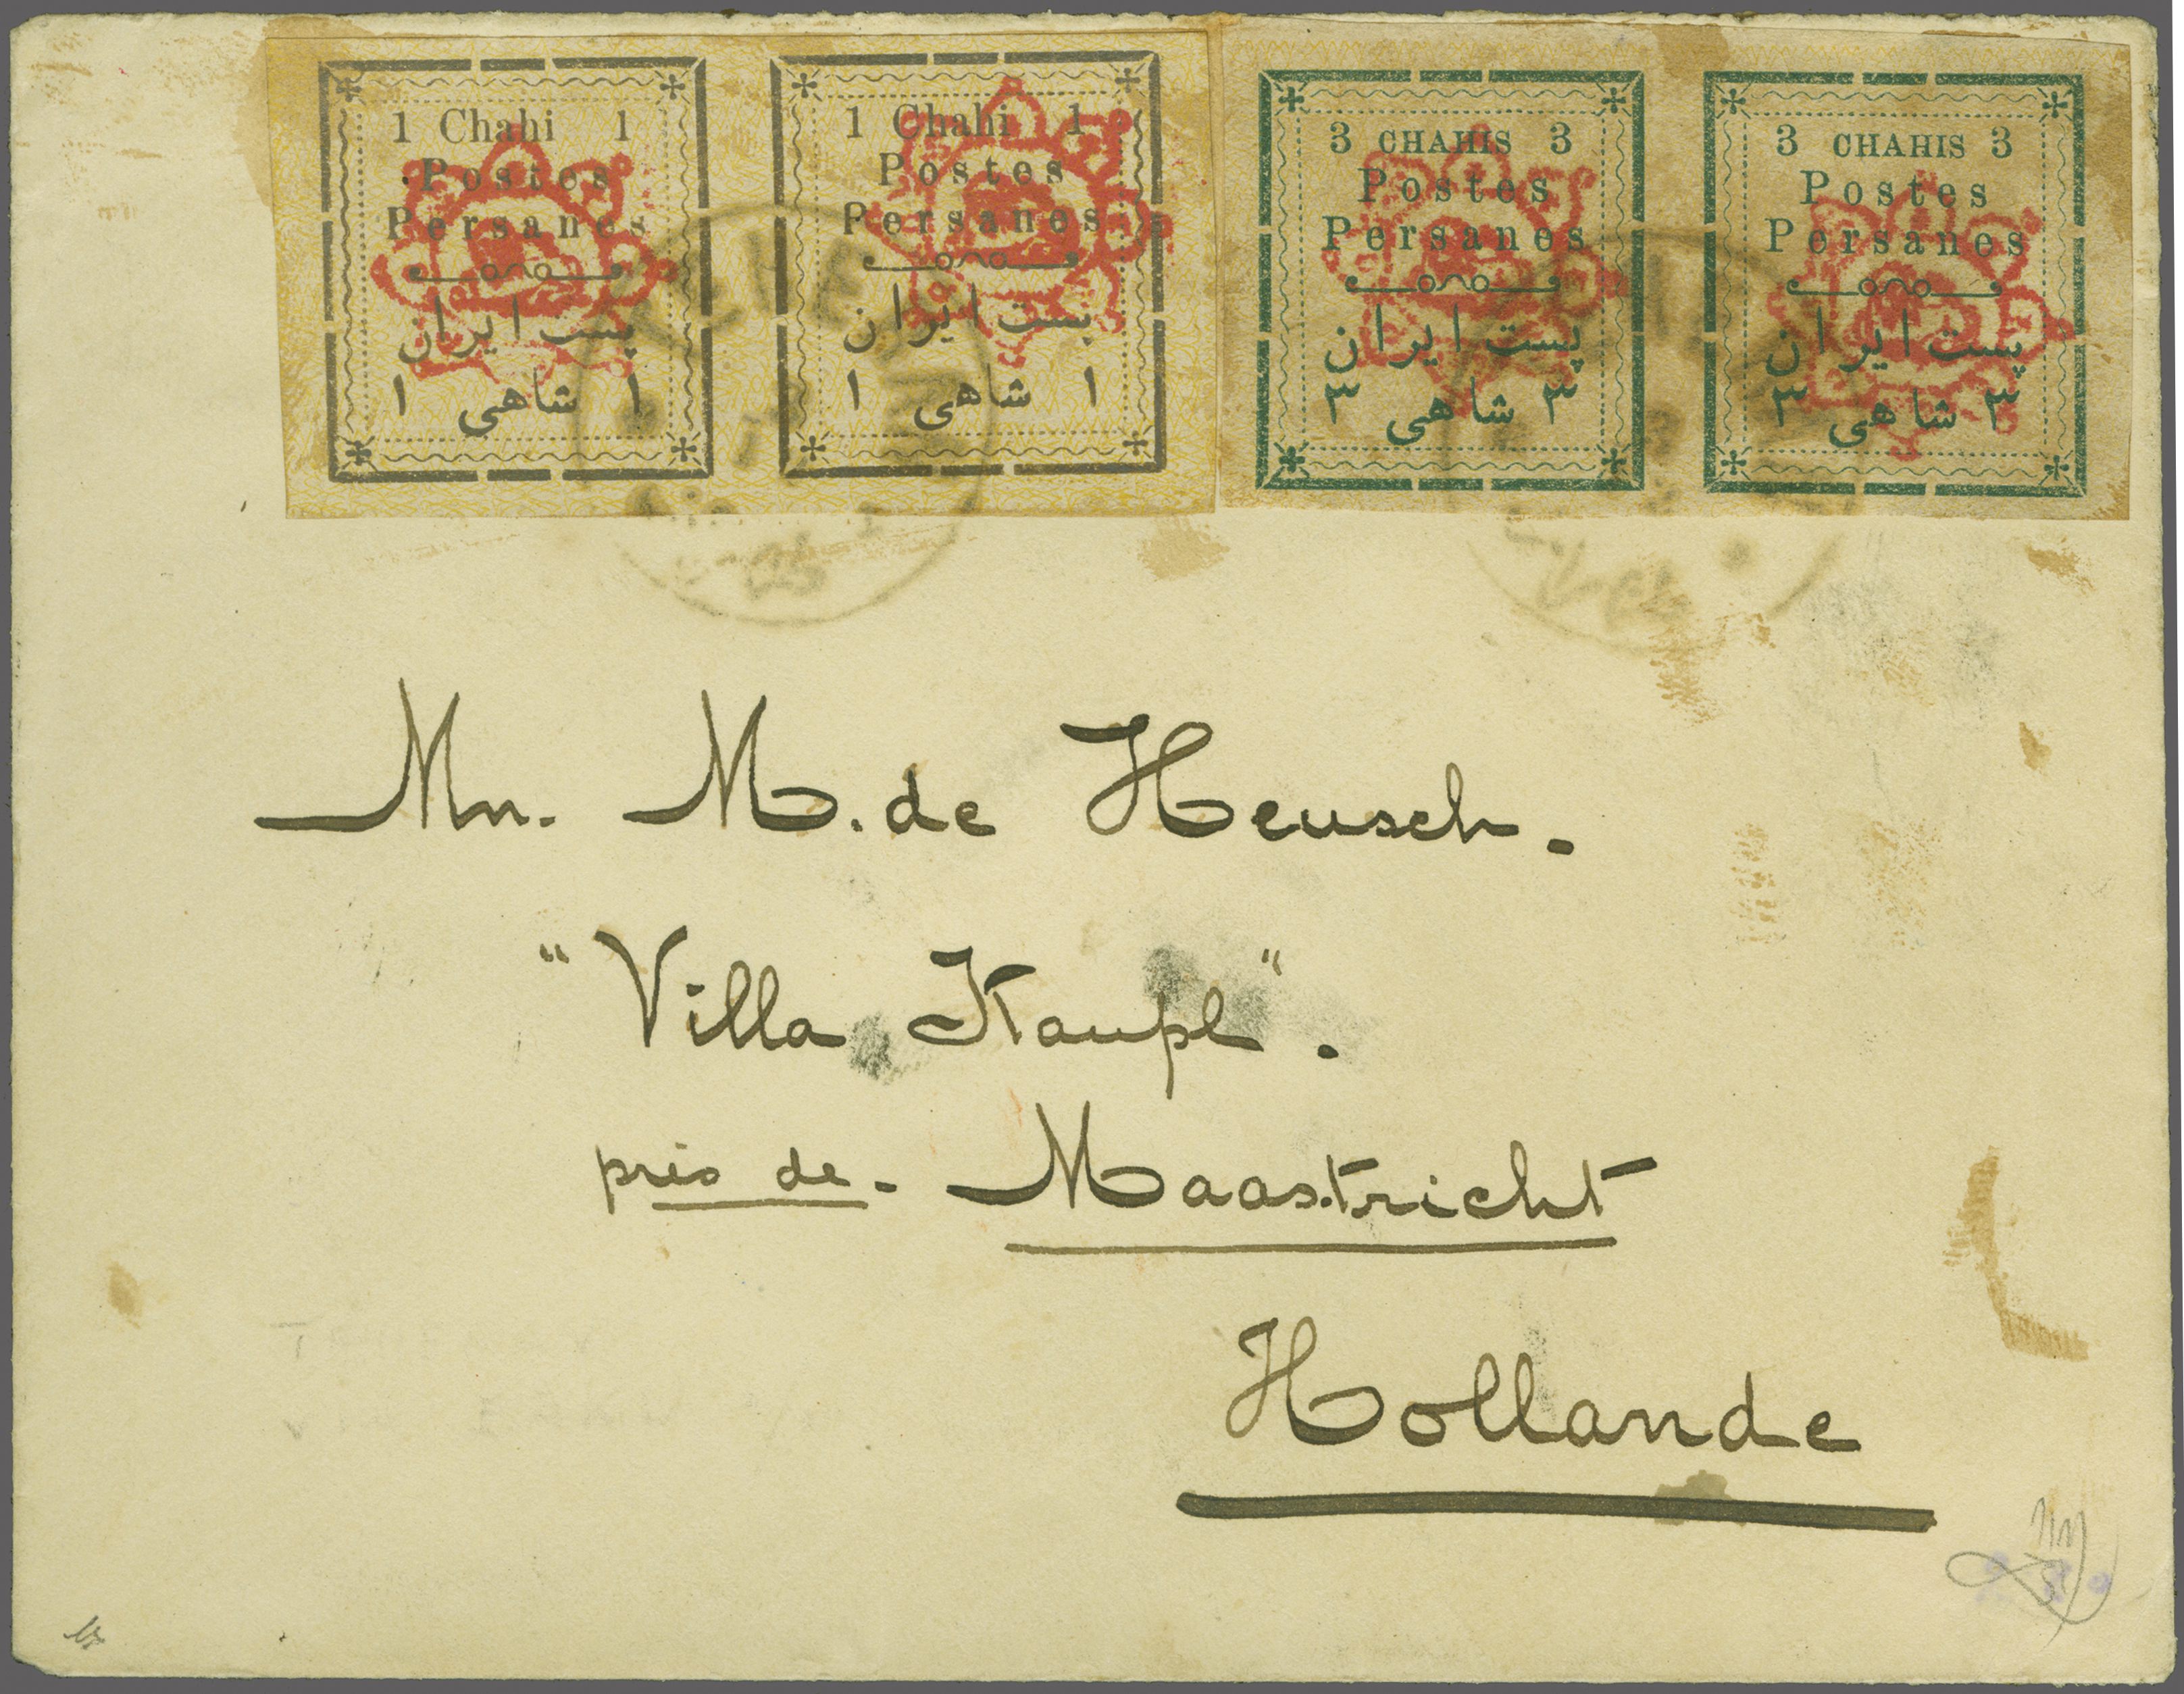 1 Chahi 1
Postes
Persanes
پست ایران
۱ شاهی ۱
1 Chahi 1
Postes
Persanes
پست ایران
۱ شاهی ۱
3 CHAHIS 3
Postes
Persanes
پست ایران
۳ شاهی ۳
3 CHAHIS 3
Postes
Persanes
پست ایران
۳ شاهی ۳
M. de Heusch.
"Villa Kaupl".
près de - Maastricht
Hollande